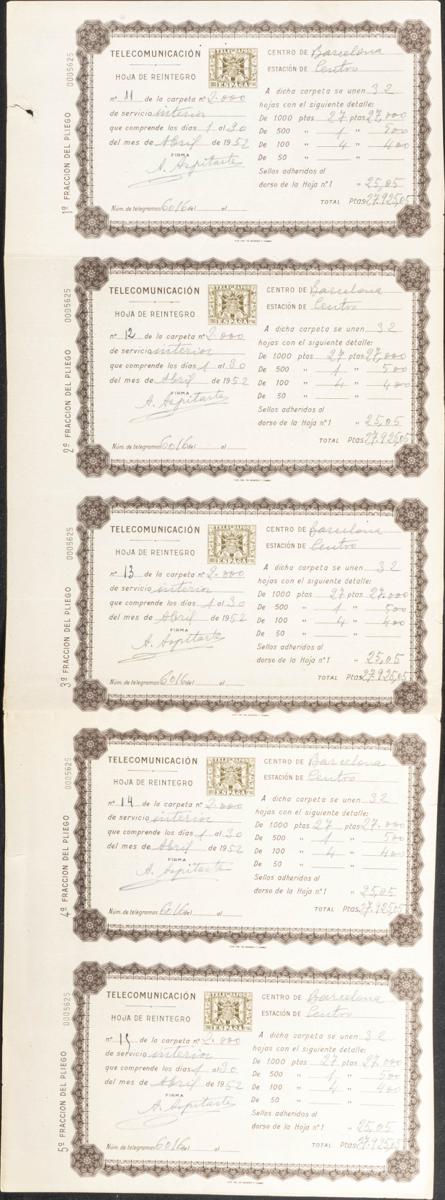 1ª FRACCION DEL PLIEGO 0005625
TELECOMUNICACIÓN
HOJA DE REINTEGRO
TELEGRAFOS
ESPAÑA
CENTRO DE Barcelona
ESTACIÓN DE Centro
nº 11 de la carpeta nº 2.000
de servicio interior
que comprende los días 1 al 30
del mes de Abril de 1952
FIRMA
A. Azpitarte
Núm. de telegramas 6016 del al
A dicha carpeta se unen 32
hojas con el siguiente detalle:
De 1000 ptas 27 ptas 27.000
De 500 " 1 " 500
De 100 " 4 " 400
De 50 " "
Sellos adheridos al
dorso de la Hoja nº 1 " 25,05
TOTAL Ptas 27.925,05
2ª FRACCION DEL PLIEGO 0005625
TELECOMUNICACIÓN
HOJA DE REINTEGRO
TELEGRAFOS
ESPAÑA
CENTRO DE Barcelona
ESTACIÓN DE Centro
nº 12 de la carpeta nº 2.000
de servicio interior
que comprende los días 1 al 30
del mes de Abril de 1952
FIRMA
A. Azpitarte
Núm. de telegramas 6016 del al
A dicha carpeta se unen 32
hojas con el siguiente detalle:
De 1000 ptas 27 ptas 27.000
De 500 " 1 " 500
De 100 " 4 " 400
De 50 " "
Sellos adheridos al
dorso de la Hoja nº 1 " 25,05
TOTAL Ptas 27.925,05
3ª FRACCION DEL PLIEGO 0005625
TELECOMUNICACIÓN
HOJA DE REINTEGRO
TELEGRAFOS
ESPAÑA
CENTRO DE Barcelona
ESTACIÓN DE Centro
nº 13 de la carpeta nº 2.000
de servicio interior
que comprende los días 1 al 30
del mes de Abril de 1952
FIRMA
A. Azpitarte
Núm. de telegramas 6016 del al
A dicha carpeta se unen 32
hojas con el siguiente detalle:
De 1000 ptas 27 ptas 27.000
De 500 " 1 " 500
De 100 " 4 " 400
De 50 " "
Sellos adheridos al
dorso de la Hoja nº 1 " 25,05
TOTAL Ptas 27.925,05
4ª FRACCION DEL PLIEGO 0005625
TELECOMUNICACIÓN
HOJA DE REINTEGRO
TELEGRAFOS
ESPAÑA
CENTRO DE Barcelona
ESTACIÓN DE Centro
nº 14 de la carpeta nº 2.000
de servicio interior
que comprende los días 1 al 30
del mes de Abril de 1952
FIRMA
A. Azpitarte
Núm. de telegramas 6016 del al
A dicha carpeta se unen 32
hojas con el siguiente detalle:
De 1000 ptas 27 ptas 27.000
De 500 " 1 " 500
De 100 " 4 " 400
De 50 " "
Sellos adheridos al
dorso de la Hoja nº 1 " 25,05
TOTAL Ptas. 27.925,05
5ª FRACCION DEL PLIEGO 0005625
TELECOMUNICACIÓN
HOJA DE REINTEGRO
TELEGRAFOS
ESPAÑA
CENTRO DE Barcelona
ESTACIÓN DE Centro
nº 15 de la carpeta nº 2.000
de servicio interior
que comprende los días 1 al 30
del mes de Abril de 1952
FIRMA
A. Azpitarte
Núm. de telegramas 6016 del al
A dicha carpeta se unen 32
hojas con el siguiente detalle:
De 1000 ptas 27 ptas 27.000
De 500 " 1 " 500
De 100 " 4 " 400
De 50 " "
Sellos adheridos al
dorso de la Hoja nº 1 " 25,05
TOTAL Ptas 27.925,05